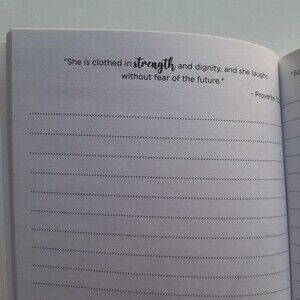 "She is clothed in strength and dignity, and she laughs
without fear of the future."
- Proverbs